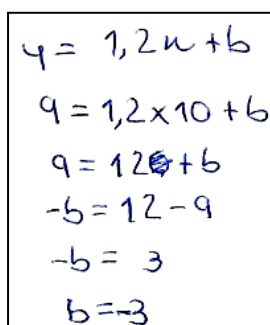 y = 1,2x + b
9 = 1,2 x 10 + b
9 = 12 + b
-b = 12 - 9
-b = 3
b = -3